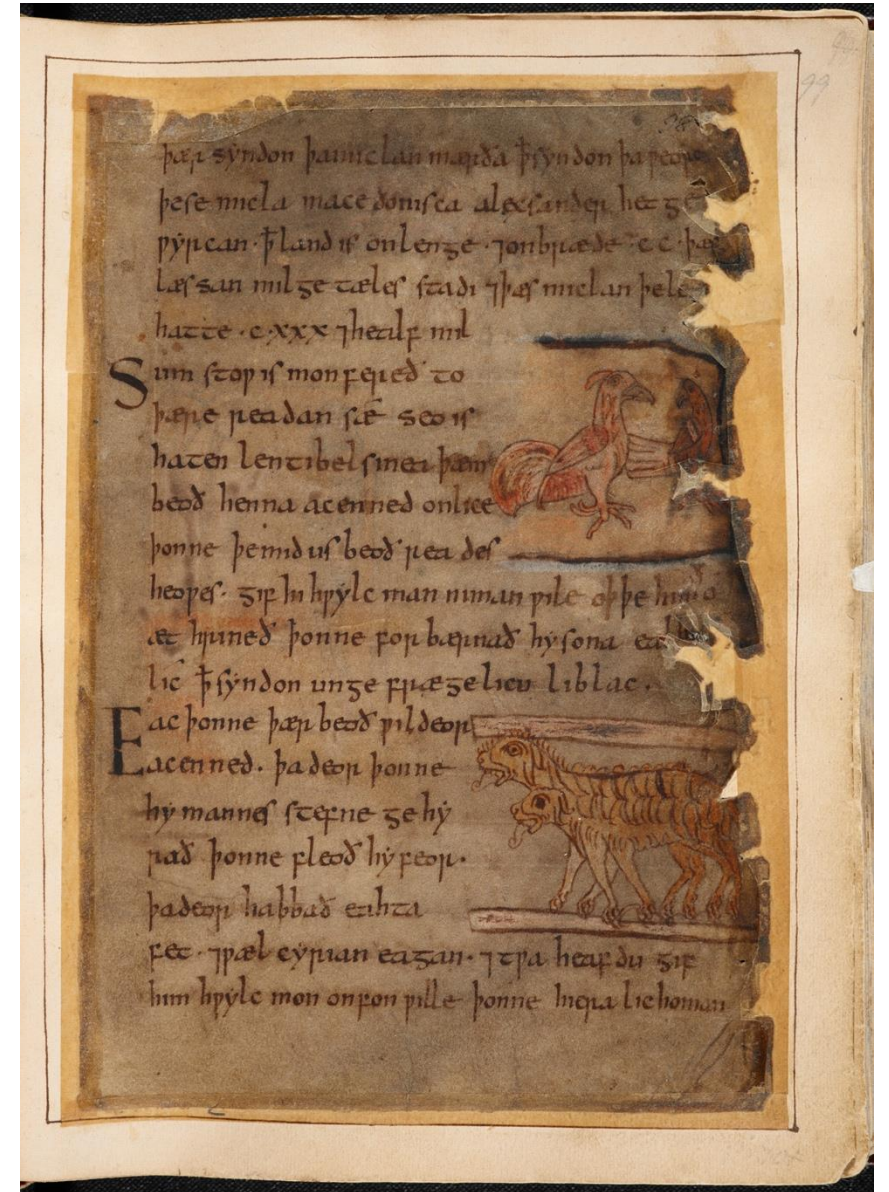 þær syndon þa miclan mærða ꝥ syndon þa ƿeorc
þe se micla macedonisca alexsander het ge
ƿyrcan · ꝥ land is on lenge · ⁊ on bræde · cc · þæs
læssan milgetæles stadi ⁊ þæs miclan þe leuua
hatte · c · xxx ⁊ healf mil
Sum stoƿ is mon fereð to
þære readan sæ seo is
haten lentibelsinea þæm
beoð henna acenned onlice
þonne þe mid us beoð reades
heoƿes · gif hi hƿylc man niman ƿile oþþe hira o
æt hrineð þonne forbærnað hy sona eal his
lic ꝥ syndon ungefrægelicu liblac .
Eac þonne þær beoð ƿildeor
acenned · þa deor þonne
hy mannes stefne gehy
rað þonne fleoð hy feor ·
þa deor habbað eahta
fet · ⁊ ƿælcyrian eagan · ⁊ tƿa heafdu gif
him hƿylc mon onfon ƿille þonne hiera lichoman
99